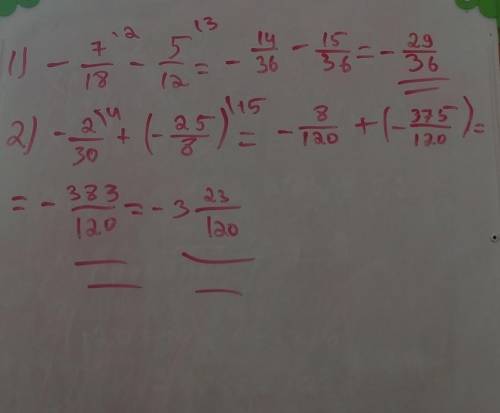 1) - 7/18 ·2 - 5/12 ·3 = - 14/36 - 15/36 = - 29/36
2) - 2/30 \4 + (- 25/8) \15 = - 8/120 + (- 375/120) =
= - 383/120 = - 3 23/120